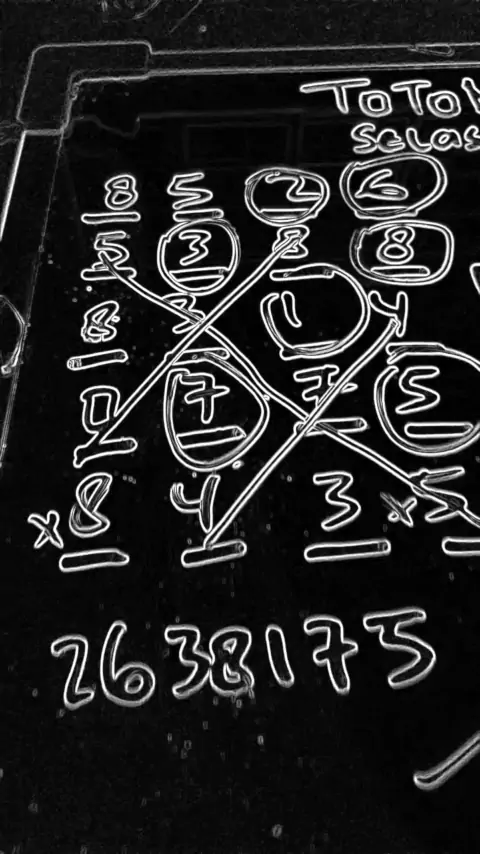 TOTO
SELAS
8 5 2 6
5 3 8 8
8 3 1 4
0 7 7 5
x8 4 3 x5
2638175